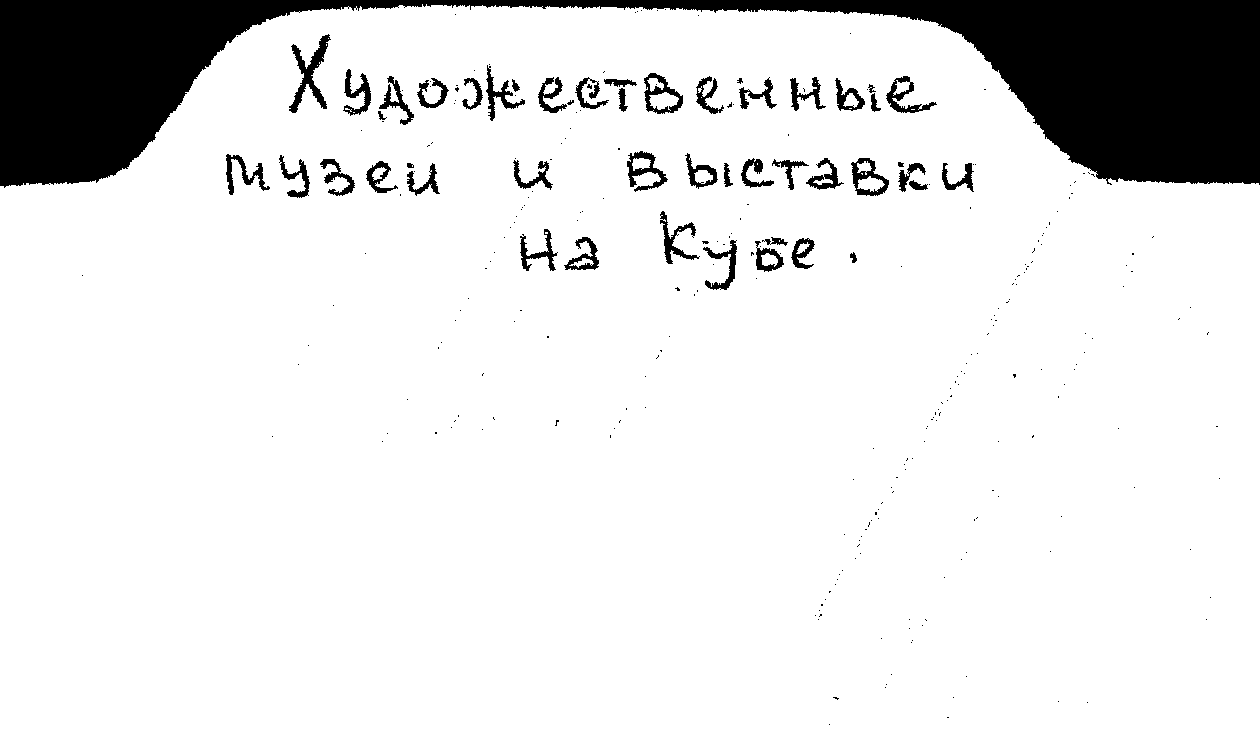 Художественные
музеи и выставки
на Кубе.